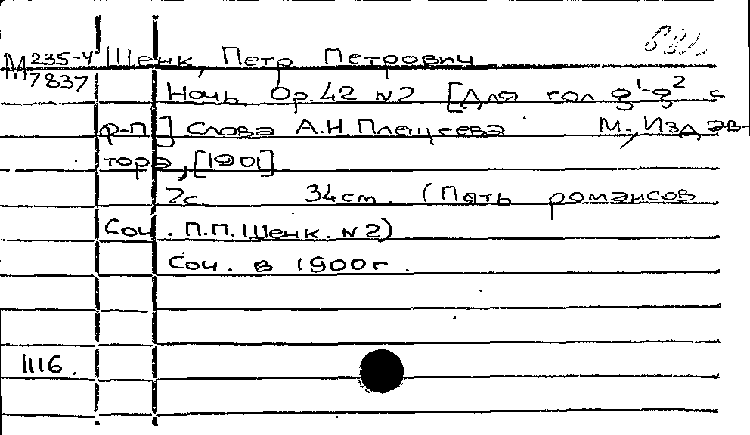 М 235-4 Шенк, Петр Петрович
7837
Ночь Op.42 N2 [Для гол g¹-g² с
ф-п.] Слова А.Н.Плещеева М., Изд. ав-
тора, [1901]
7с 34cm. (Пять романсов
Соч. П.П.Шенк. N2)
Соч. в 1900г.
1116.